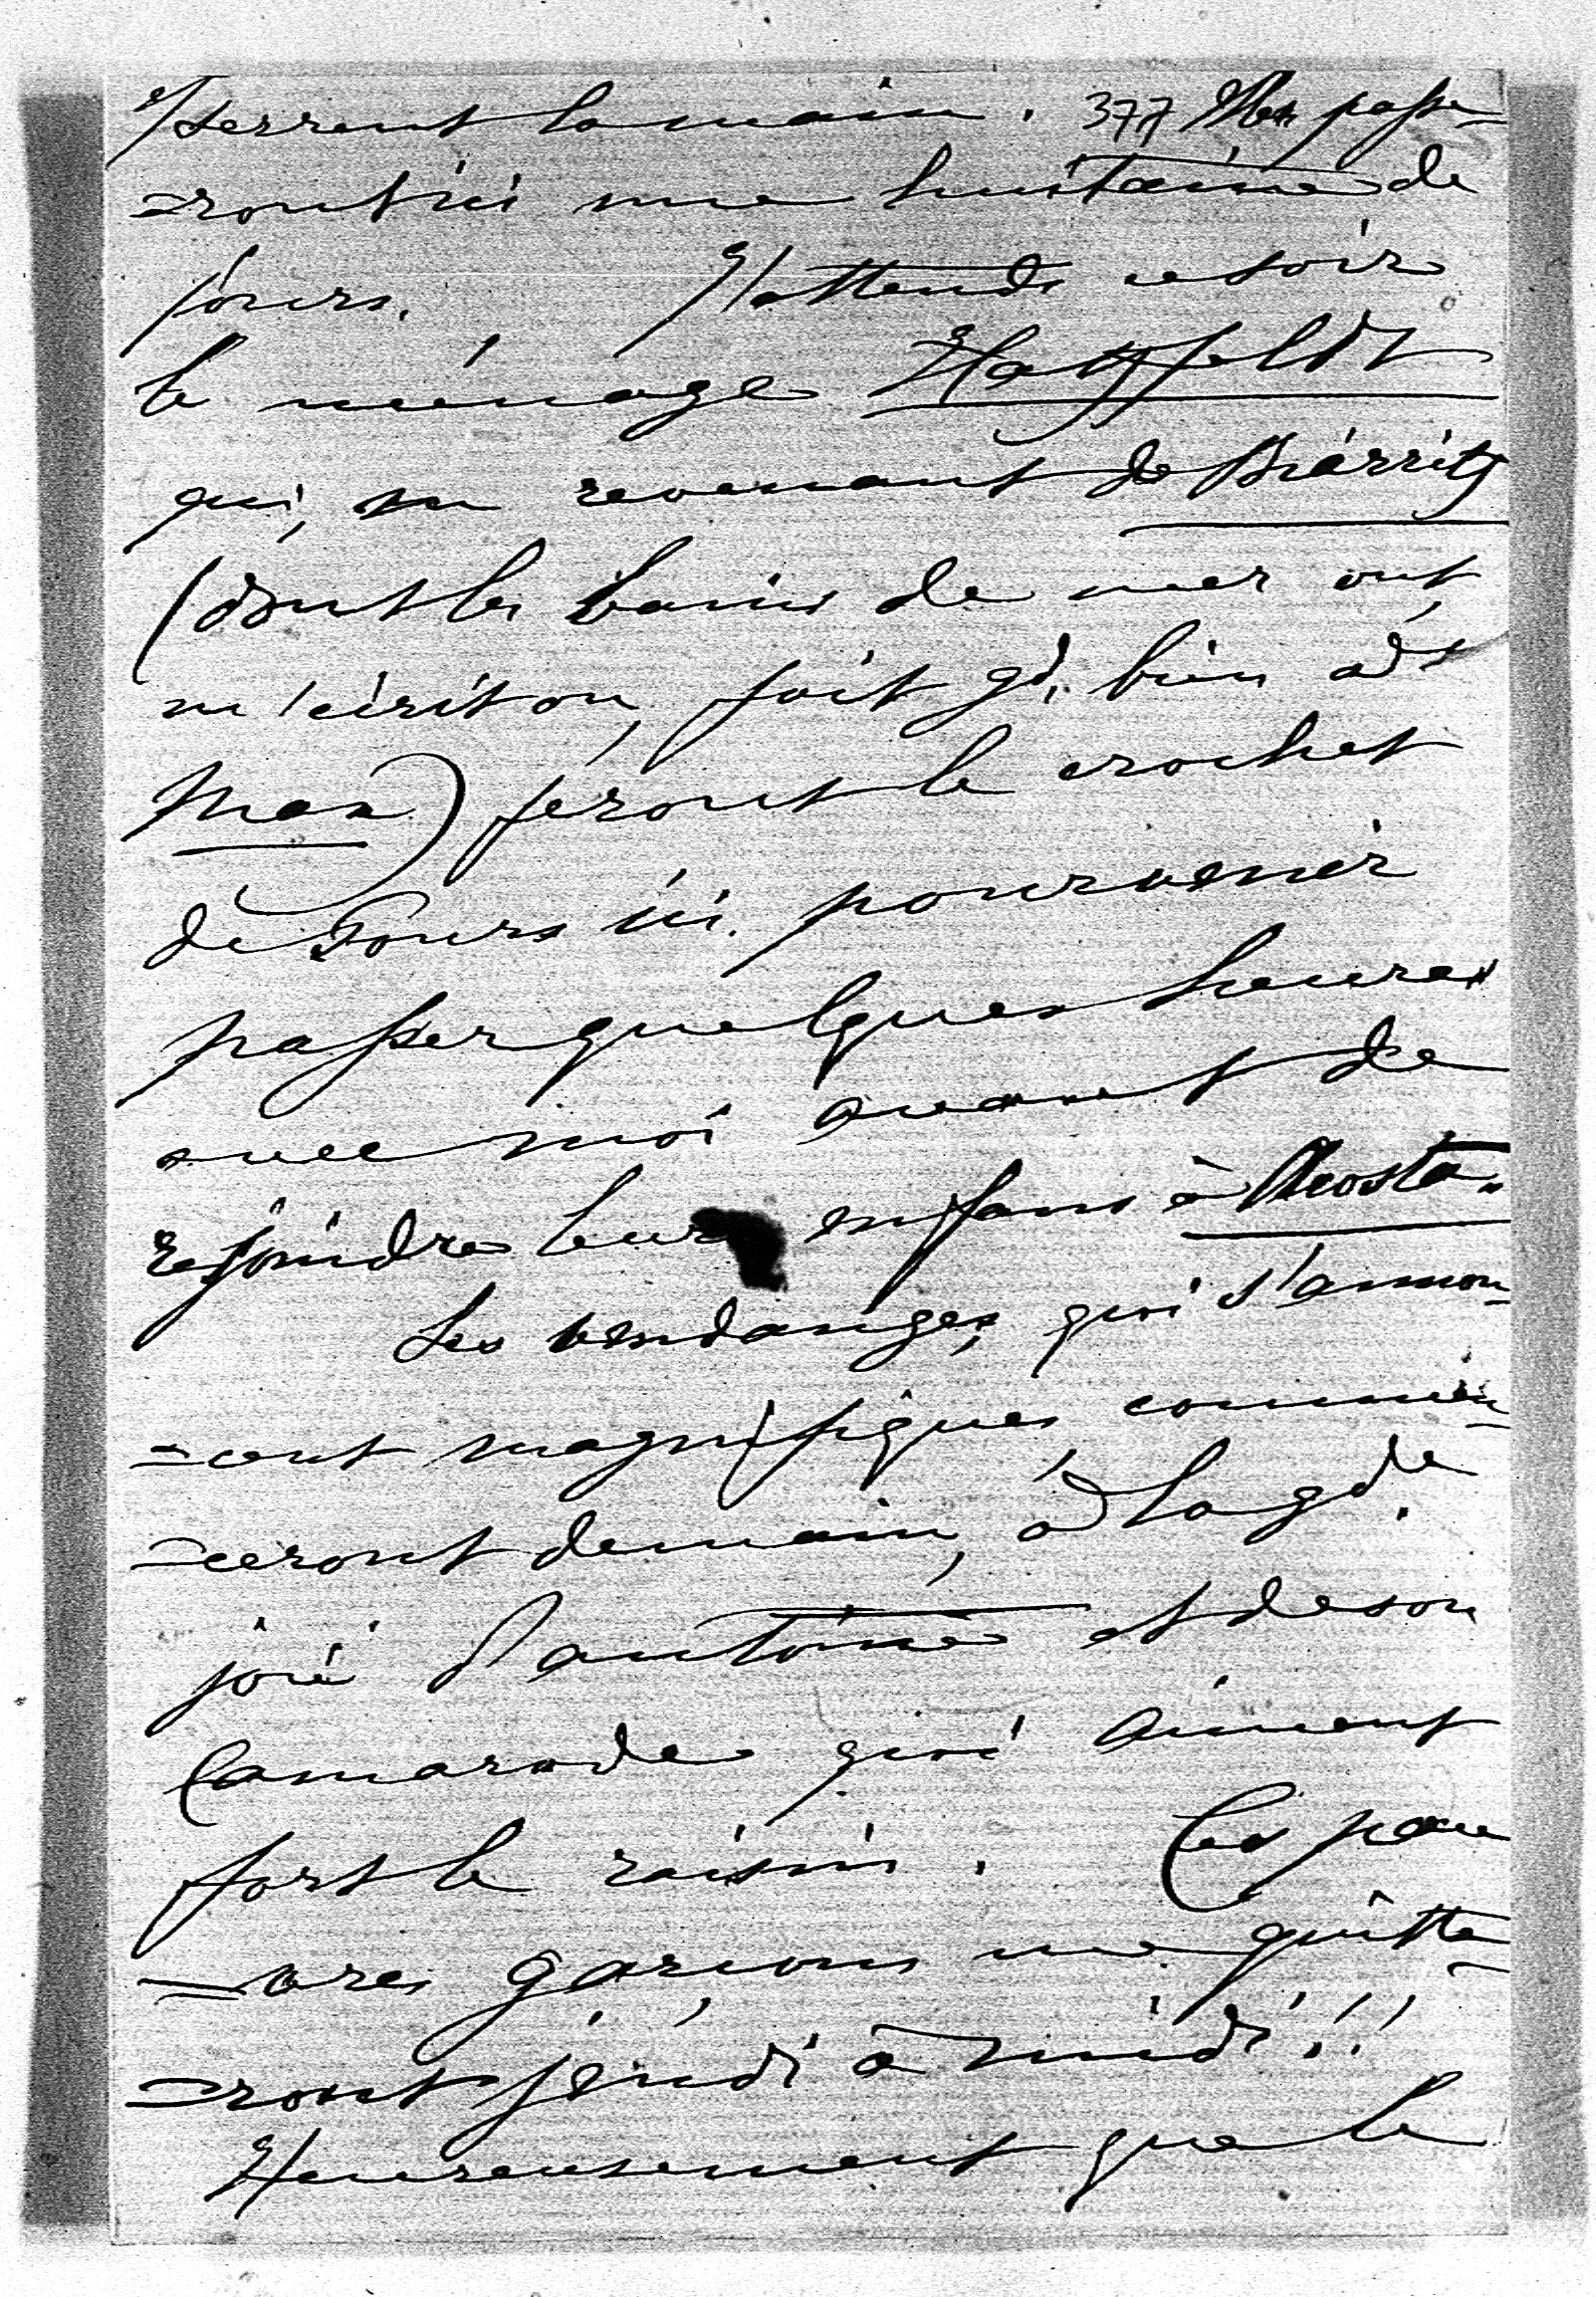 serrent la main. 377 Ils passe-
=ront ici une huitaine de
jours. J'attends ce soir
le ménage Hatzfeldt
qui, en revenant de Biarritz
(dont les bains de mer ont,
m'écrit on, fait gd. bien à
Max) feront le crochet
de Tours ici pour venir
passer quelques heures
avec moi avant de
rejoindre leurs enfans à Acosta.
Les vendanges, qui s'annon-
=cent magnifiques, commen-
=ceront demain, à la gde.
joie d'Antoine et de son
Camarade qui aiment
fort le raisin. Ces pau
=vres garçons me quitte-
=ront jeudi à midi!!
Heureusement que le